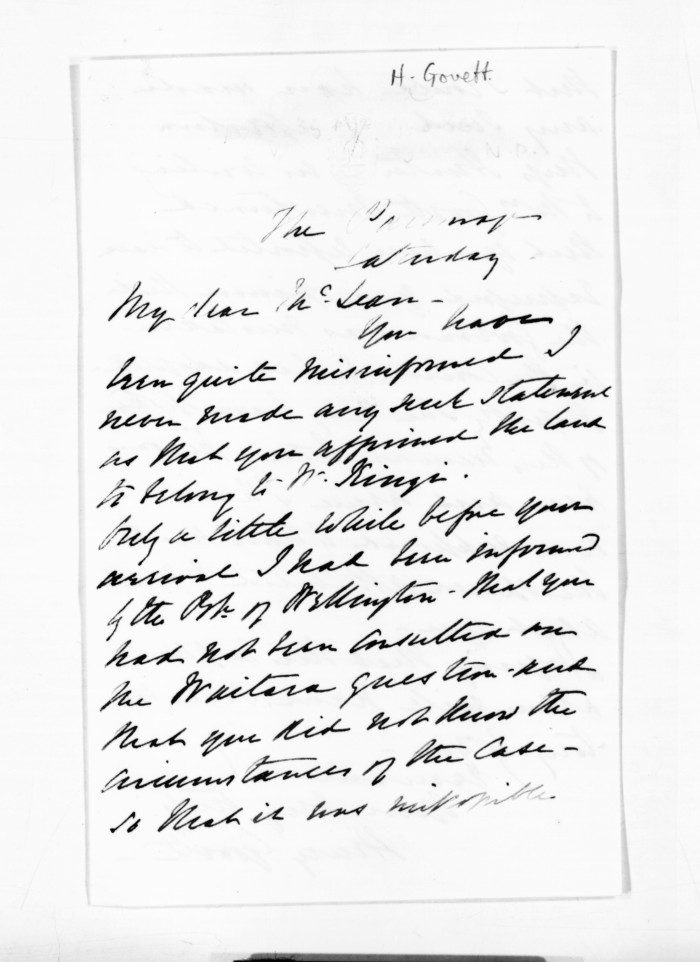 H. Govett.
The Parsonage
Saturday
My dear McLean -
You have
been quite misinformed I
never made any such statement
as that you affirmed the land
to belong to Wm. Kingi.
Only a little while before your
arrival I had been informed
by the Bp. of Wellington - that you
had not been consulted on
the Waitara question - and
that you did not know the
circumstances of the Case -
so that it was impossible